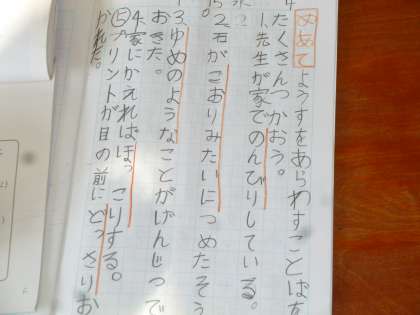 めあて ようすをあらわすことばを
たくさんつかおう。
1.先生が家でのんびりしている。
2.石がこおりみたいにつめたそう
。
3.ゆめのようなことがげんじつで
おきた。
4.家にかえればほっこりする。
5プリントが目の前にどっさりお
かれた。